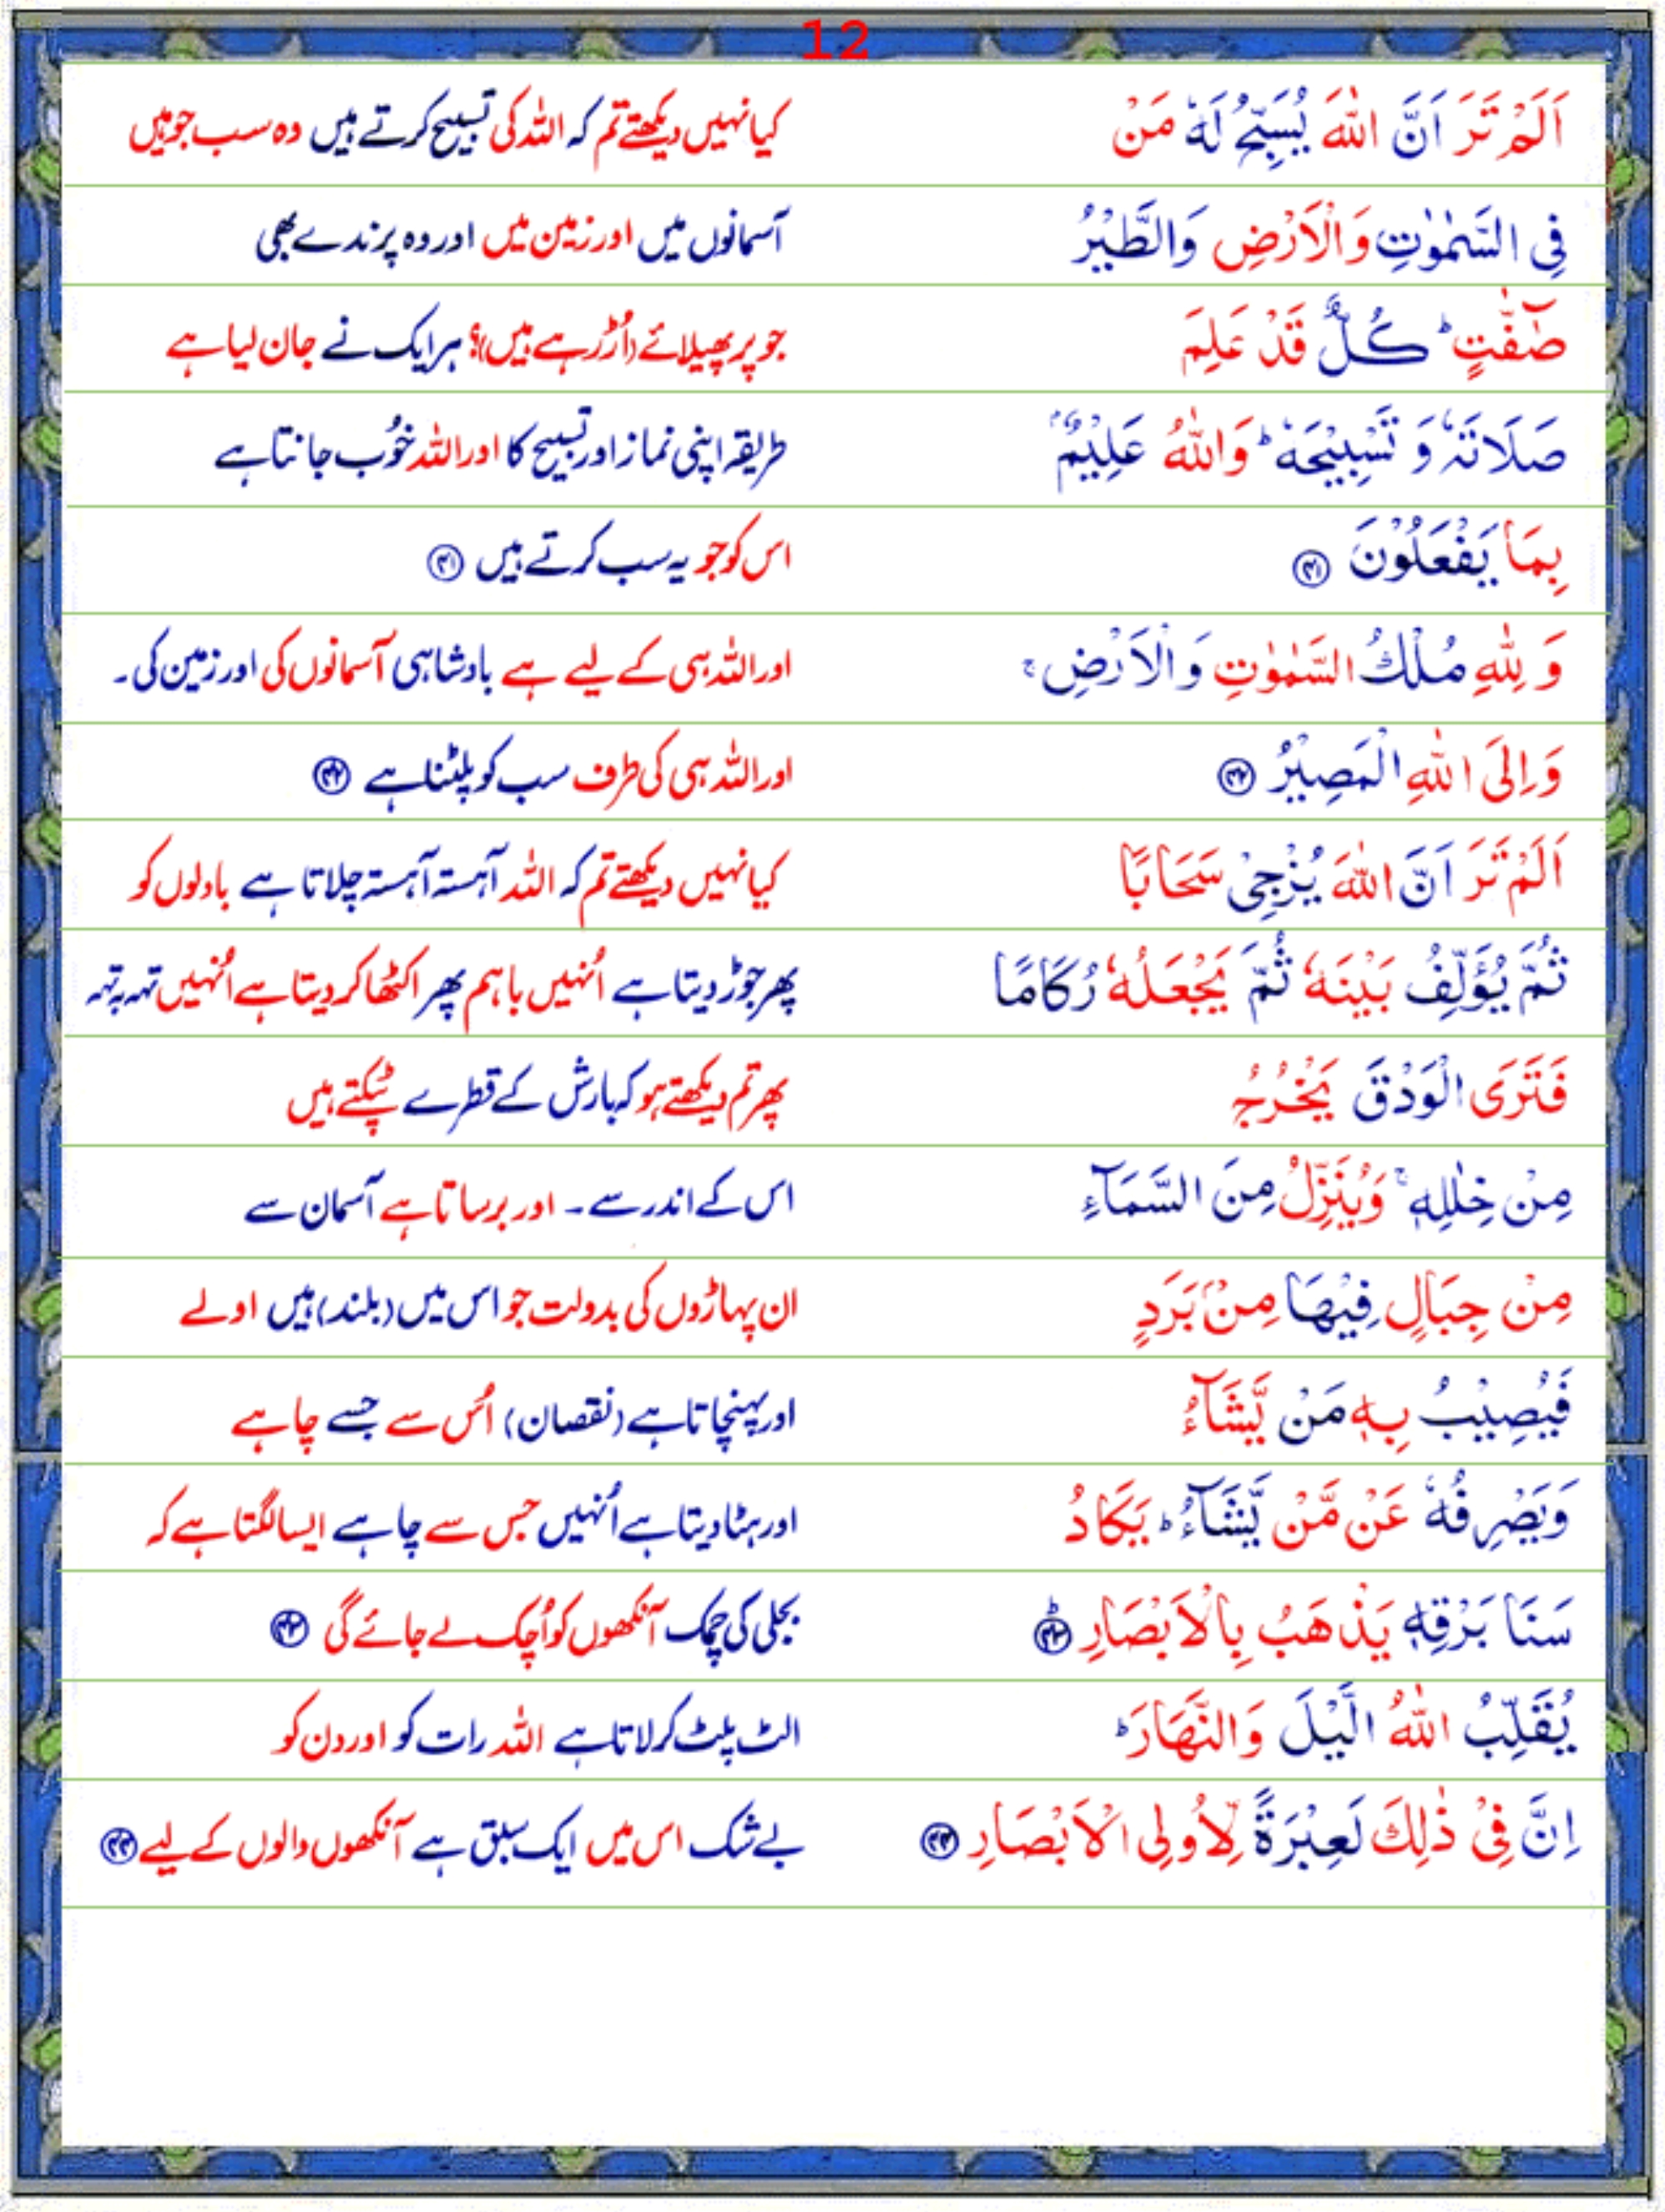 12
اَلَمْ تَرَ اَنَّ اللّٰهَ يُسَبِّحُ لَهٗ مَنْ
کیا نہیں دیکھتے تم کہ اللہ کی تسبیح کرتے ہیں وہ سب جو ہیں
فِى السَّمٰوٰتِ وَالْاَرْضِ وَالطَّيْرُ
آسمانوں میں اور زمین میں اور وہ پرندے بھی
صٰٓفّٰتٍ ؕ كُلٌّ قَدْ عَلِمَ
جو پر پھیلائے (اُڑ رہے ہیں)؟ ہر ایک نے جان لیا ہے
صَلَاتَهٗ وَ تَسْبِيْحَهٗ ؕ وَاللّٰهُ عَلِيْمٌۢ
طریقہ اپنی نماز اور تسبیح کا اور اللہ خُوب جانتا ہے
بِمَا يَفْعَلُوْنَ ۴۱
اس کو جو یہ سب کرتے ہیں ۴۱
وَ لِلّٰهِ مُلْكُ السَّمٰوٰتِ وَ الْاَرْضِ ۚ
اور اللہ ہی کے لیے ہے بادشاہی آسمانوں کی اور زمین کی۔
وَ اِلَى اللّٰهِ الْمَصِيْرُ ۴۲
اور اللہ ہی کی طرف سب کو پلٹنا ہے ۴۲
اَلَمْ تَرَ اَنَّ اللّٰهَ يُزْجِىْ سَحَابًا
کیا نہیں دیکھتے تم کہ اللہ آہستہ آہستہ چلاتا ہے بادلوں کو
ثُمَّ يُؤَلِّفُ بَيْنَهٗ ثُمَّ يَجْعَلُهٗ رُكَامًا
پھر جوڑ دیتا ہے اُنہیں باہم پھر اکٹھا کر دیتا ہے اُنہیں تہہ بہ تہہ
فَتَرَى الْوَدْقَ يَخْرُجُ
پھر تم دیکھتے ہو کہ بارش کے قطرے ٹپکتے ہیں
مِنْ خِلٰلِهٖ ۚ وَيُنَزِّلُ مِنَ السَّمَآءِ
اس کے اندر سے۔ اور برساتا ہے آسمان سے
مِنْ جِبَالٍ فِيْهَا مِنْۢ بَرَدٍ
ان پہاڑوں کی بدولت جو اس میں (بلند) ہیں اولے
فَيُصِيْبُ بِهٖ مَنْ يَّشَآءُ
اور پہنچاتا ہے (نقصان) اُس سے جسے چاہے
وَيَصْرِفُهٗ عَنْ مَّنْ يَّشَآءُ ؕ يَكَادُ
اور ہٹا دیتا ہے اُنہیں جس سے چاہے ایسا لگتا ہے کہ
سَنَا بَرْقِهٖ يَذْهَبُ بِالْاَبْصَارِ ؕ ۴۳
بجلی کی چمک آنکھوں کو اُچک لے جائے گی ۴۳
يُقَلِّبُ اللّٰهُ الَّيْلَ وَالنَّهَارَ ؕ
الٹ پلٹ کر لاتا ہے اللہ رات کو اور دن کو
اِنَّ فِىْ ذٰلِكَ لَعِبْرَةً لِّاُولِى الْاَبْصَارِ ۴۴
بے شک اس میں ایک سبق ہے آنکھوں والوں کے لیے ۴۴